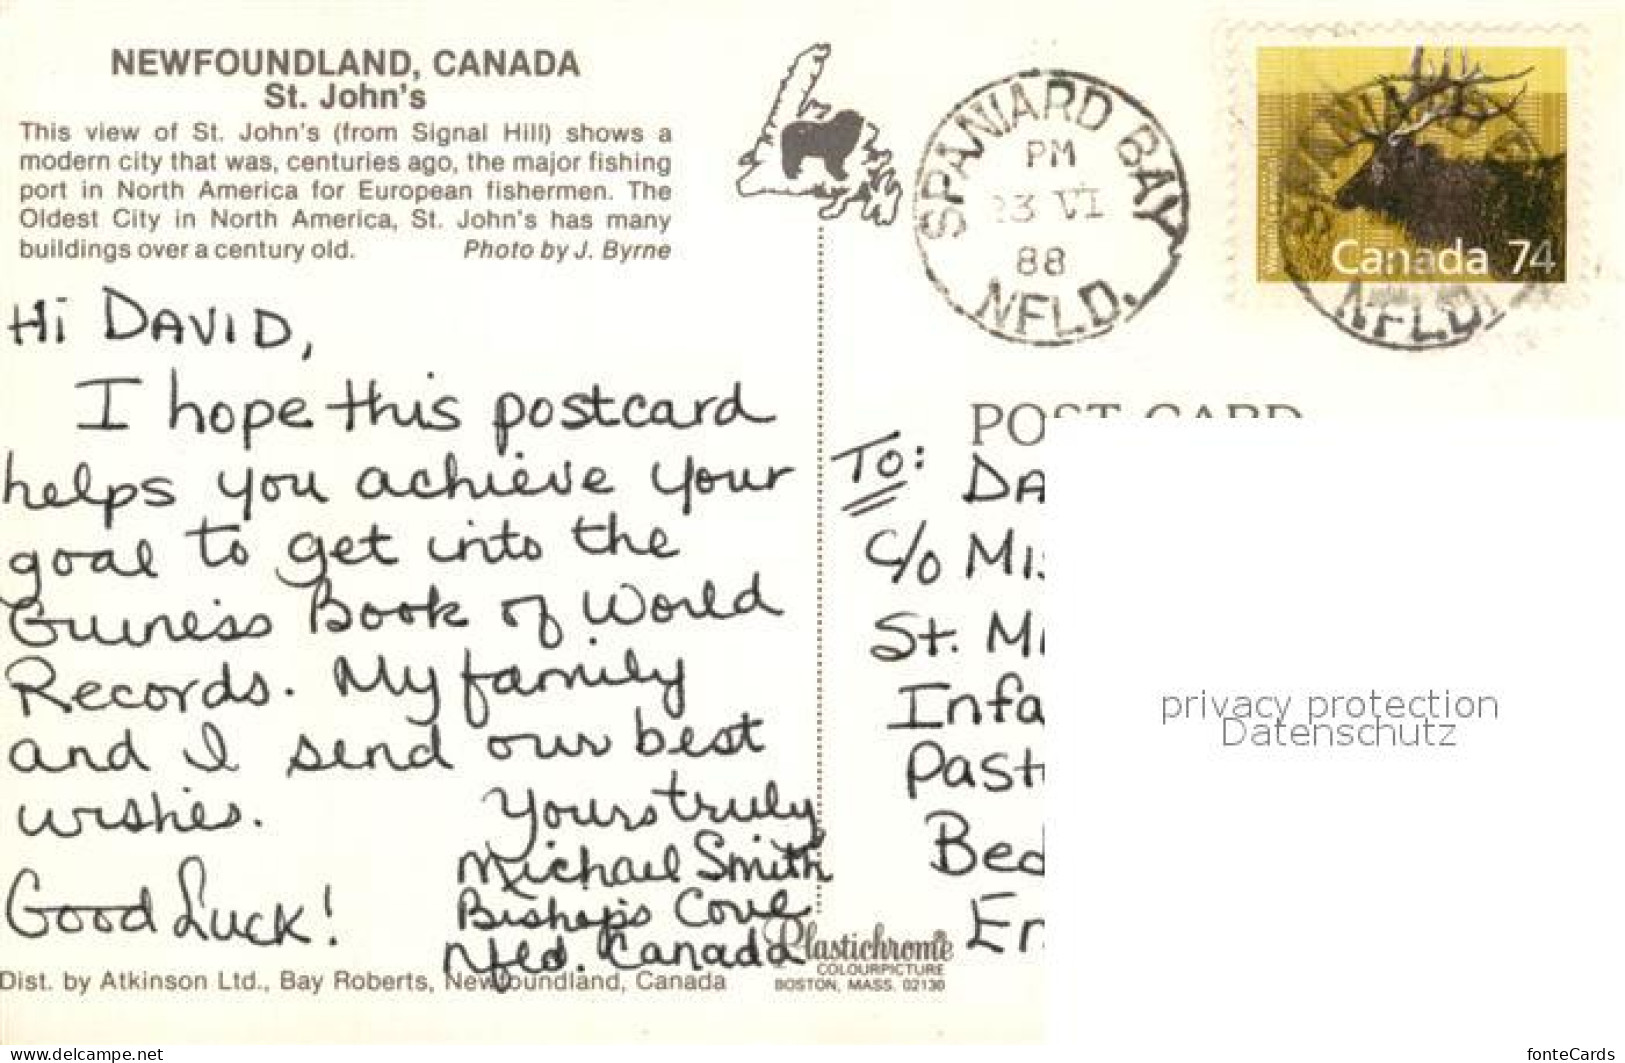 NEWFOUNDLAND, CANADA
St. John's
This view of St. John's (from Signal Hill) shows a
modern city that was, centuries ago, the major fishing
port in North America for European fishermen. The
Oldest City in North America, St. John's has many
buildings over a century old. Photo by J. Byrne
SPANIARD BAY
PM
23 VI
88
NFLD.
Canada 74
NFLD.
Hi DAVID,
I hope this postcard
helps you achieve your
goal to get into the
Guiness Book of World
Records. My family
and I send our best
wishes.
Yours truly
Michael Smith
Bishop's Cove
Nfld. Canada
Good Luck!
POST CARD
To: DA
c/o Mis
St. Mi
Infa
Past
Bed
En
privacy protection
Datenschutz
Plastichrome®
COLOURPICTURE
BOSTON, MASS. 02130
Dist. by Atkinson Ltd., Bay Roberts, Newfoundland, Canada
www.delcampe.net
fonteCards